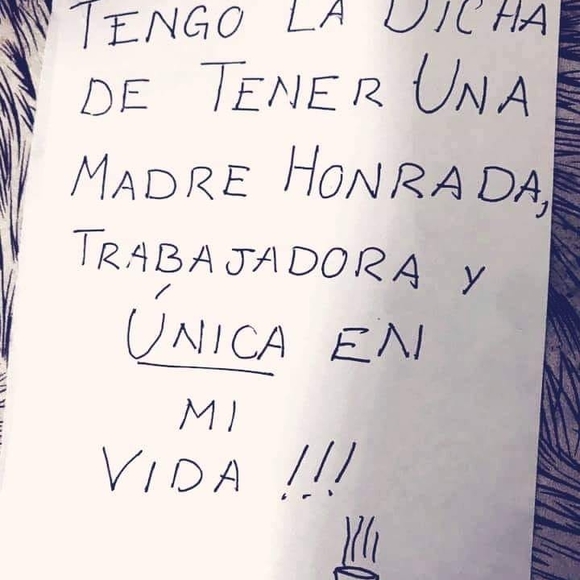 TENGO LA DICHA
DE TENER UNA
MADRE HONRADA,
TRABAJADORA Y
ÚNICA EN
MI
VIDA !!!